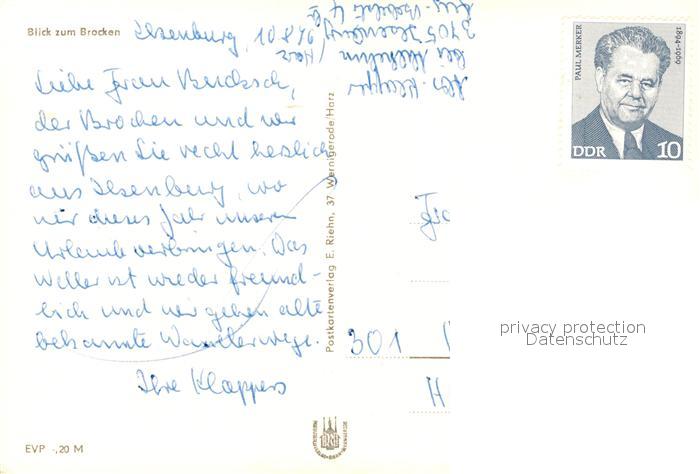 Blick zum Brocken
Ilsenburg, 10.8.76
Liebe Frau Bucksch,
der Brocken und wir
grüßen Sie recht herzlich
aus Ilsenburg, wo
wir dieses Jahr unseren
Urlaub verbringen. Das
Wetter ist wieder freund-
lich und wir gehen alte
bekannte Wanderwege.
Ihre Klappers
EVP -,20 M
Postkartenverlag E. Riehn, 37 Wernigerode/Harz
3705 Ilsenburg/
Harz
PAUL MERKER
1894-1969
DDR 10
301
H
privacy protection
Datenschutz